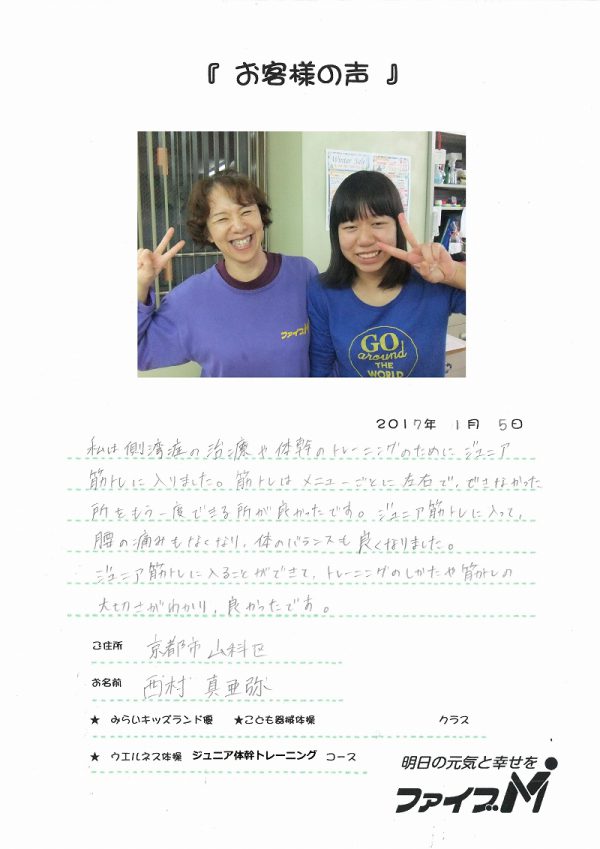 『 お客様の声 』
Winter Sale
ファイブM
GO
around
THE
WORLD
2017年 1月 5日
私は側湾症の治療や体幹のトレーニングのためにジュニア
筋トレに入りました。筋トレはメニューごとに左右で、できなかった
所をもう一度できる所が良かったです。ジュニア筋トレに入って、
腰の痛みもなくなり、体のバランスも良くなりました。
ジュニア筋トレに入ることができて、トレーニングのしかたや筋トレの
大切さがわかり、良かったです。
ご住所 京都市山科区
お名前 西村 真亜弥
★ みらいキッズランド優 ★こども器械体操 クラス
★ ウエルネス体操 ジュニア体幹トレーニング コース
明日の元気と幸せを
ファイブM